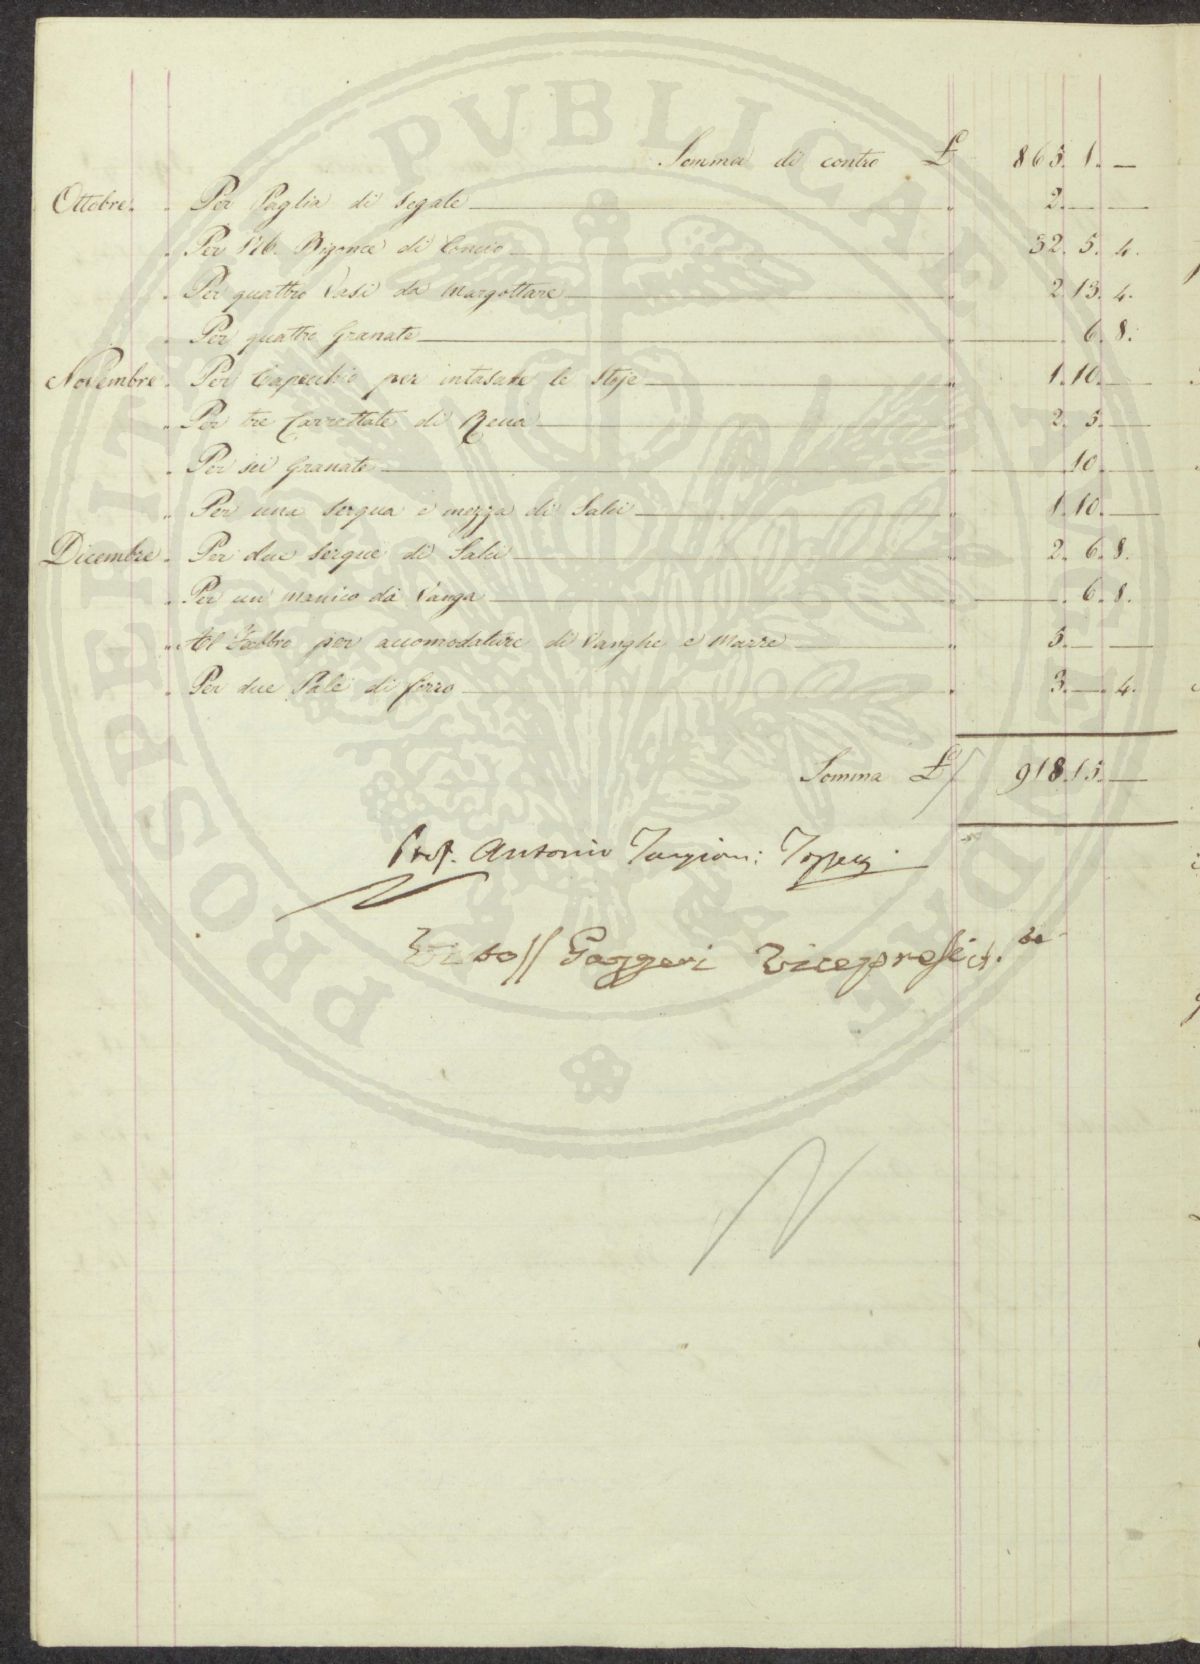 Somma di contro £ 865. 1. —
Ottobre. Per Paglia di Segale 2. — —
Per 176. Bigonce di Concio 32. 5. 4.
Per quattro Vasi da Margottare 2. 13. 4.
Per quattro Granate — 6. 8.
Novembre. Per Capecchio per intasare le Stoje 1. 10. —
Per tre Carrettate di Rena 2. 5. —
Per sei Granate — 10. —
Per una serqua e mezza di Salci 1. 10. —
Dicembre. Per due serque di Salci 2. 6. 8.
Per un manico da Vanga — 6. 8.
Al Fabbro per accomodature di Vanghe e Marre 5. — —
Per due Pale di ferro 3. — 4.
Somma £ 918. 15. —
Prof. Antonio Targioni: Tozzetti
Visto // Gazzeri Vicepresid.te
PROSPERITATI PUBLICAE AUGENDAE